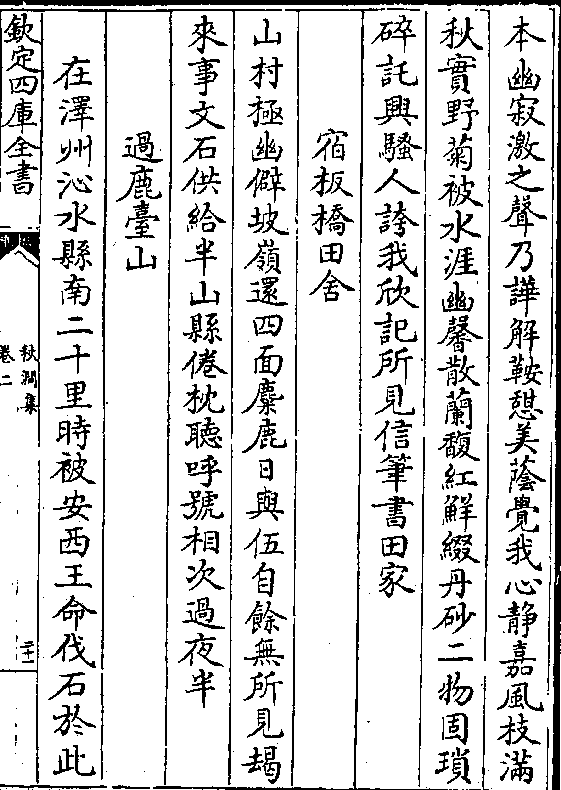 本幽寂激之聲乃譁解鞍憇美蔭覺我心静嘉風枝滿
秋實野菊被水涯幽馨散蘭馥紅鮮綴丹砂二物固瑣
碎託興騷人誇我欣記所見信筆書田家
宿板橋田舍
山村極幽僻坡嶺還四面麋鹿日與伍自餘無所見朅
來事文石供給半山縣倦枕聽呼號相次過夜半
過鹿臺山
在澤州沁水縣南二十里時被安西王命伐石於此
欽定四庫全書
秋澗集
卷二
二十一